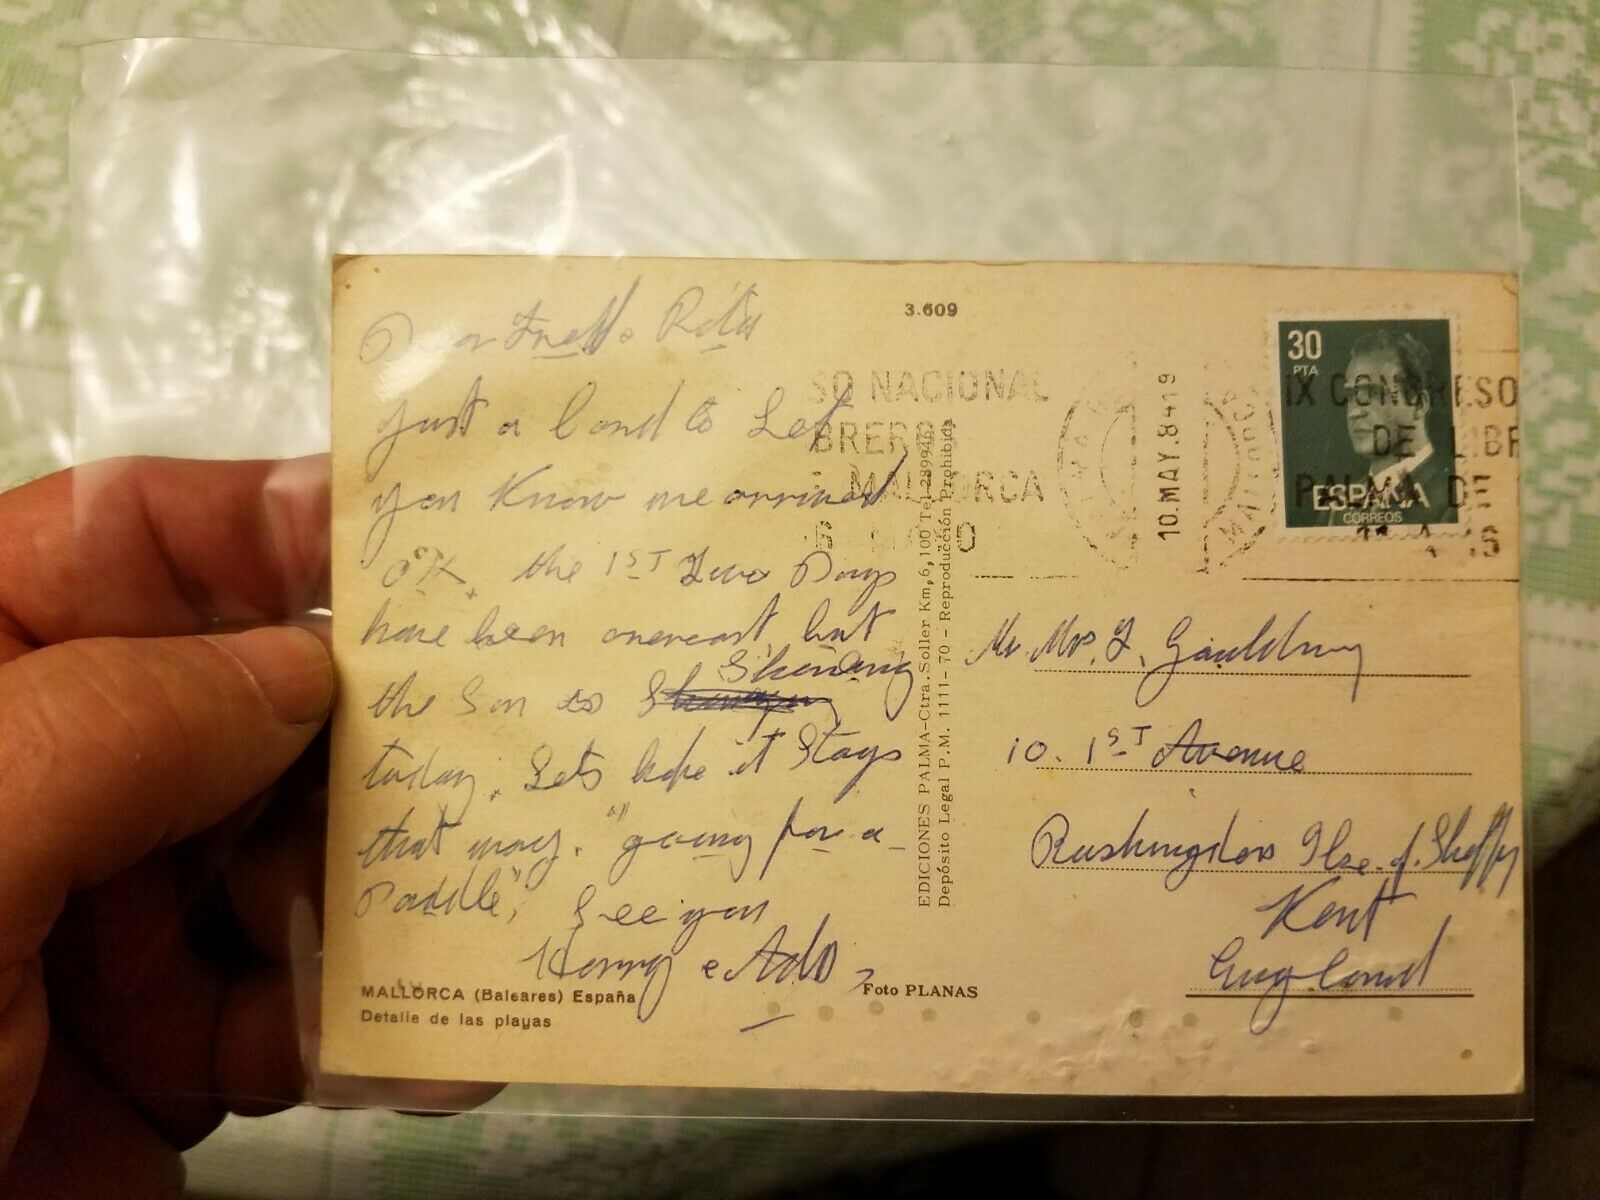 Dear & Rita
Just a Card to Let
you Know we arrived
OK. the 1ST Two Days
have been overcast, but
the Sun is Shining
today. Lets hope it Stays
that way. "going for a
Paddle", See you
Kenny
MALLORCA (Baleares) España
Detalle de las playas
Foto PLANAS
3.609
EDICIONES PALMA-Ctra. Soller Km, 6,100 Tel 289946
Depósito Legal P.M. 1111-70 - Reproducción Prohibida
SO NACIONAL
BREROS
MALLORCA
10.MAY.84
19
MALLORCA
30
PTA
ESPAÑA
CORREOS
IX CONGRESO
DE LIBR
PALMA DE
Mr. Mrs. F. Goulding
10. 1ST Avenue
Rushingdon Ilse. of. Sheppy
Kent
England